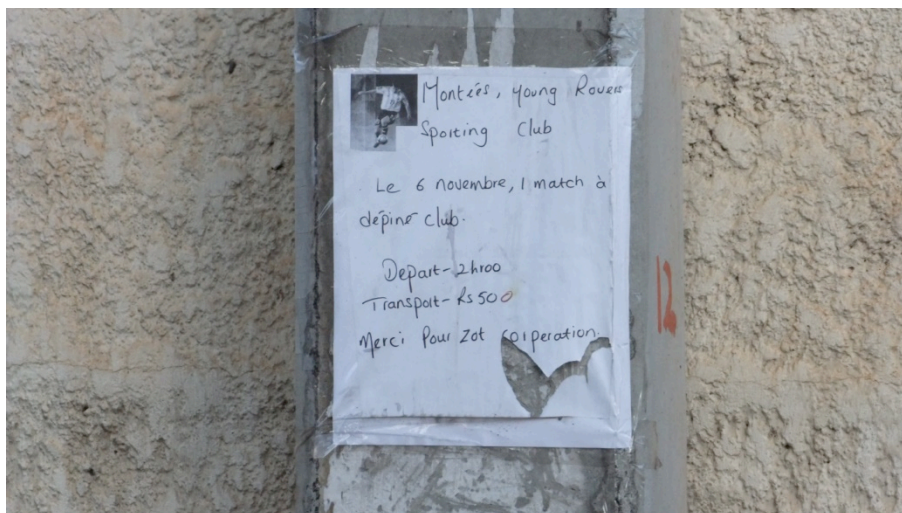 Montées, young Rovers
Sporting Club
Le 6 novembre, 1 match à
dépiné club.
Départ - 2h00
Transport - Rs 500
Merci Pour Zot coiperation.
12